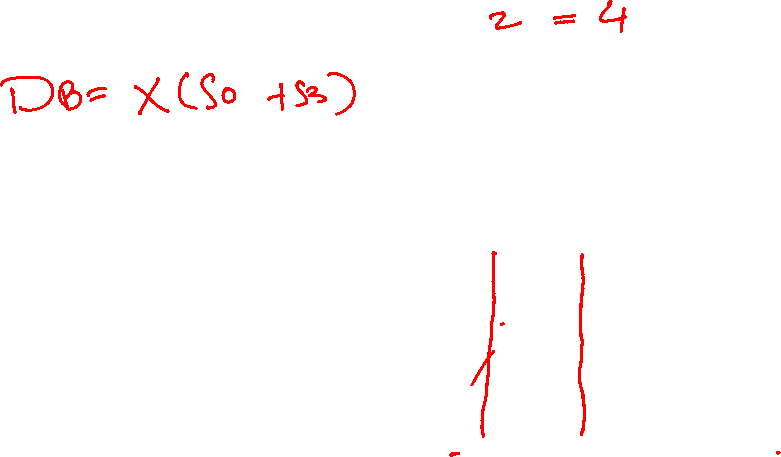 2 = 4
DB= X(S0 +S3)